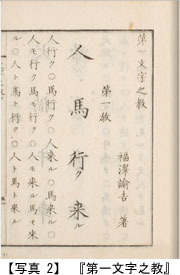 第一文字之教
福澤諭吉 著
第一教
人 馬 行ク 来ル
人行ク○馬行ク○人来ル○馬来ル○
人モ行ク馬モ行ク○人モ来ル馬モ来
ル○人ト馬ト行ク○人ト馬ト来ル
【写真 2】 『第一文字之教』